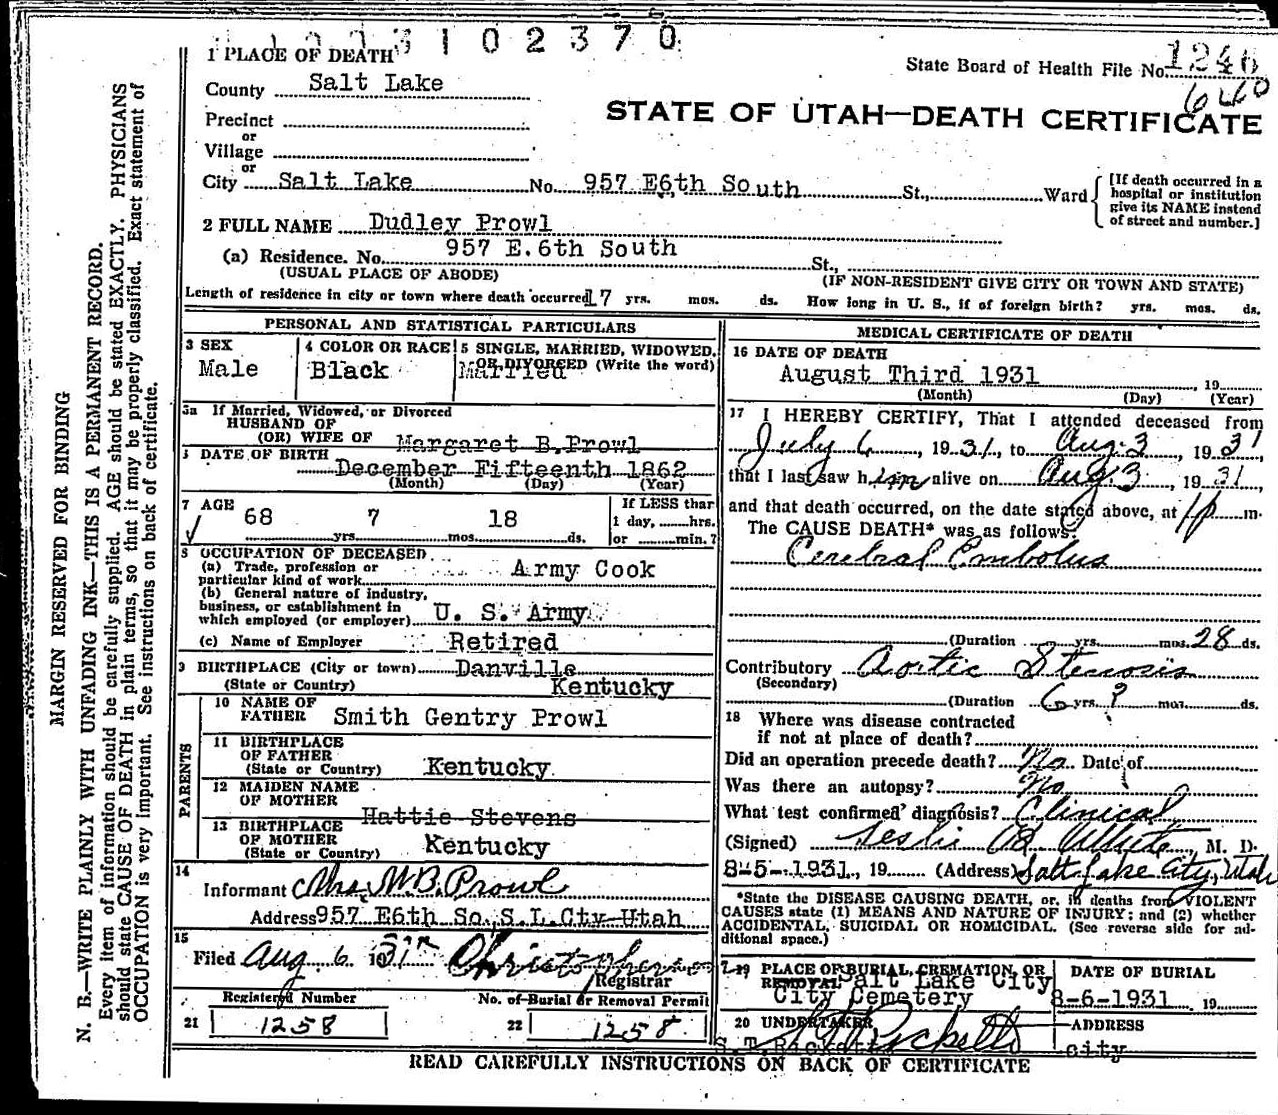 1 0 2 3 7 0
1 PLACE OF DEATH
State Board of Health File No. 1246
640
County Salt Lake
STATE OF UTAH—DEATH CERTIFICATE
Precinct
or
Village
or
City Salt Lake No. 957 E6th South St., Ward
[If death occurred in a hospital or institution give its NAME instead of street and number.]
2 FULL NAME Dudley Prowl
(a) Residence. No. 957 E.6th South St.,
(USUAL PLACE OF ABODE) (IF NON-RESIDENT GIVE CITY OR TOWN AND STATE)
Length of residence in city or town where death occurred 17 yrs. mos. ds. How long in U. S., if of foreign birth? yrs. mos. ds.
PERSONAL AND STATISTICAL PARTICULARS
3 SEX
Male
4 COLOR OR RACE
Black
5 SINGLE, MARRIED, WIDOWED, OR DIVORCED (Write the word)
Married
5a If Married, Widowed, or Divorced
HUSBAND OF
(OR) WIFE OF Margaret B.Prowl
DATE OF BIRTH
December Fifteenth 1862
(Month) (Day) (Year)
7 AGE
68 yrs. 7 mos. 18 ds.
If LESS than
1 day, hrs.
or min.?
8 OCCUPATION OF DECEASED
(a) Trade, profession or
particular kind of work Army Cook
(b) General nature of industry,
business, or establishment in
which employed (or employer) U. S. Army
(c) Name of Employer Retired
9 BIRTHPLACE (City or town) Danville
(State or Country) Kentucky
PARENTS
10 NAME OF
FATHER Smith Gentry Prowl
11 BIRTHPLACE
OF FATHER
(State or Country) Kentucky
12 MAIDEN NAME
OF MOTHER
Hattie Stevens
13 BIRTHPLACE
OF MOTHER
(State or Country) Kentucky
14
Informant Mrs. M.B. Prowl
Address 957 E6th So. S.L.Cty Utah
15
Filed Aug. 6 1931
Registrar
Registered Number
21 1258
No. of Burial or Removal Permit
22 1258
MEDICAL CERTIFICATE OF DEATH
16 DATE OF DEATH
August Third 1931, 19
(Month) (Day) (Year)
17 I HEREBY CERTIFY, That I attended deceased from
July 6, 1931, to Aug. 3, 1931,
that I last saw him alive on Aug 3, 1931,
and that death occurred, on the date stated above, at 1 p m.
The CAUSE DEATH* was as follows:
Cerebral Embolus
(Duration yrs. mos. 28 ds.
Contributory Aortic Stenosis
(Secondary)
(Duration 6 yrs. ? mos. ds.
18 Where was disease contracted
if not at place of death?
Did an operation precede death? No Date of
Was there an autopsy? No
What test confirmed diagnosis? Clinical
(Signed) Leslie White, M. D.
8-5-1931, 19 (Address) Salt Lake City, Utah
*State the DISEASE CAUSING DEATH, or, in deaths from VIOLENT
CAUSES state (1) MEANS AND NATURE OF INJURY; and (2) whether
ACCIDENTAL, SUICIDAL OR HOMICIDAL. (See reverse side for ad-
ditional space.)
19 PLACE OF BURIAL, CREMATION, OR
REMOVAL Salt Lake City
City Cemetery
DATE OF BURIAL
8-6-1931 19
20 UNDERTAKER
ADDRESS
city
READ CAREFULLY INSTRUCTIONS ON BACK OF CERTIFICATE
MARGIN RESERVED FOR BINDING
N. B.—WRITE PLAINLY WITH UNFADING INK—THIS IS A PERMANENT RECORD.
Every item of information should be carefully supplied. AGE should be stated EXACTLY. PHYSICIANS
should state CAUSE OF DEATH in plain terms, so that it may be properly classified. Exact statement of
OCCUPATION is very important. See instructions on back of certificate.